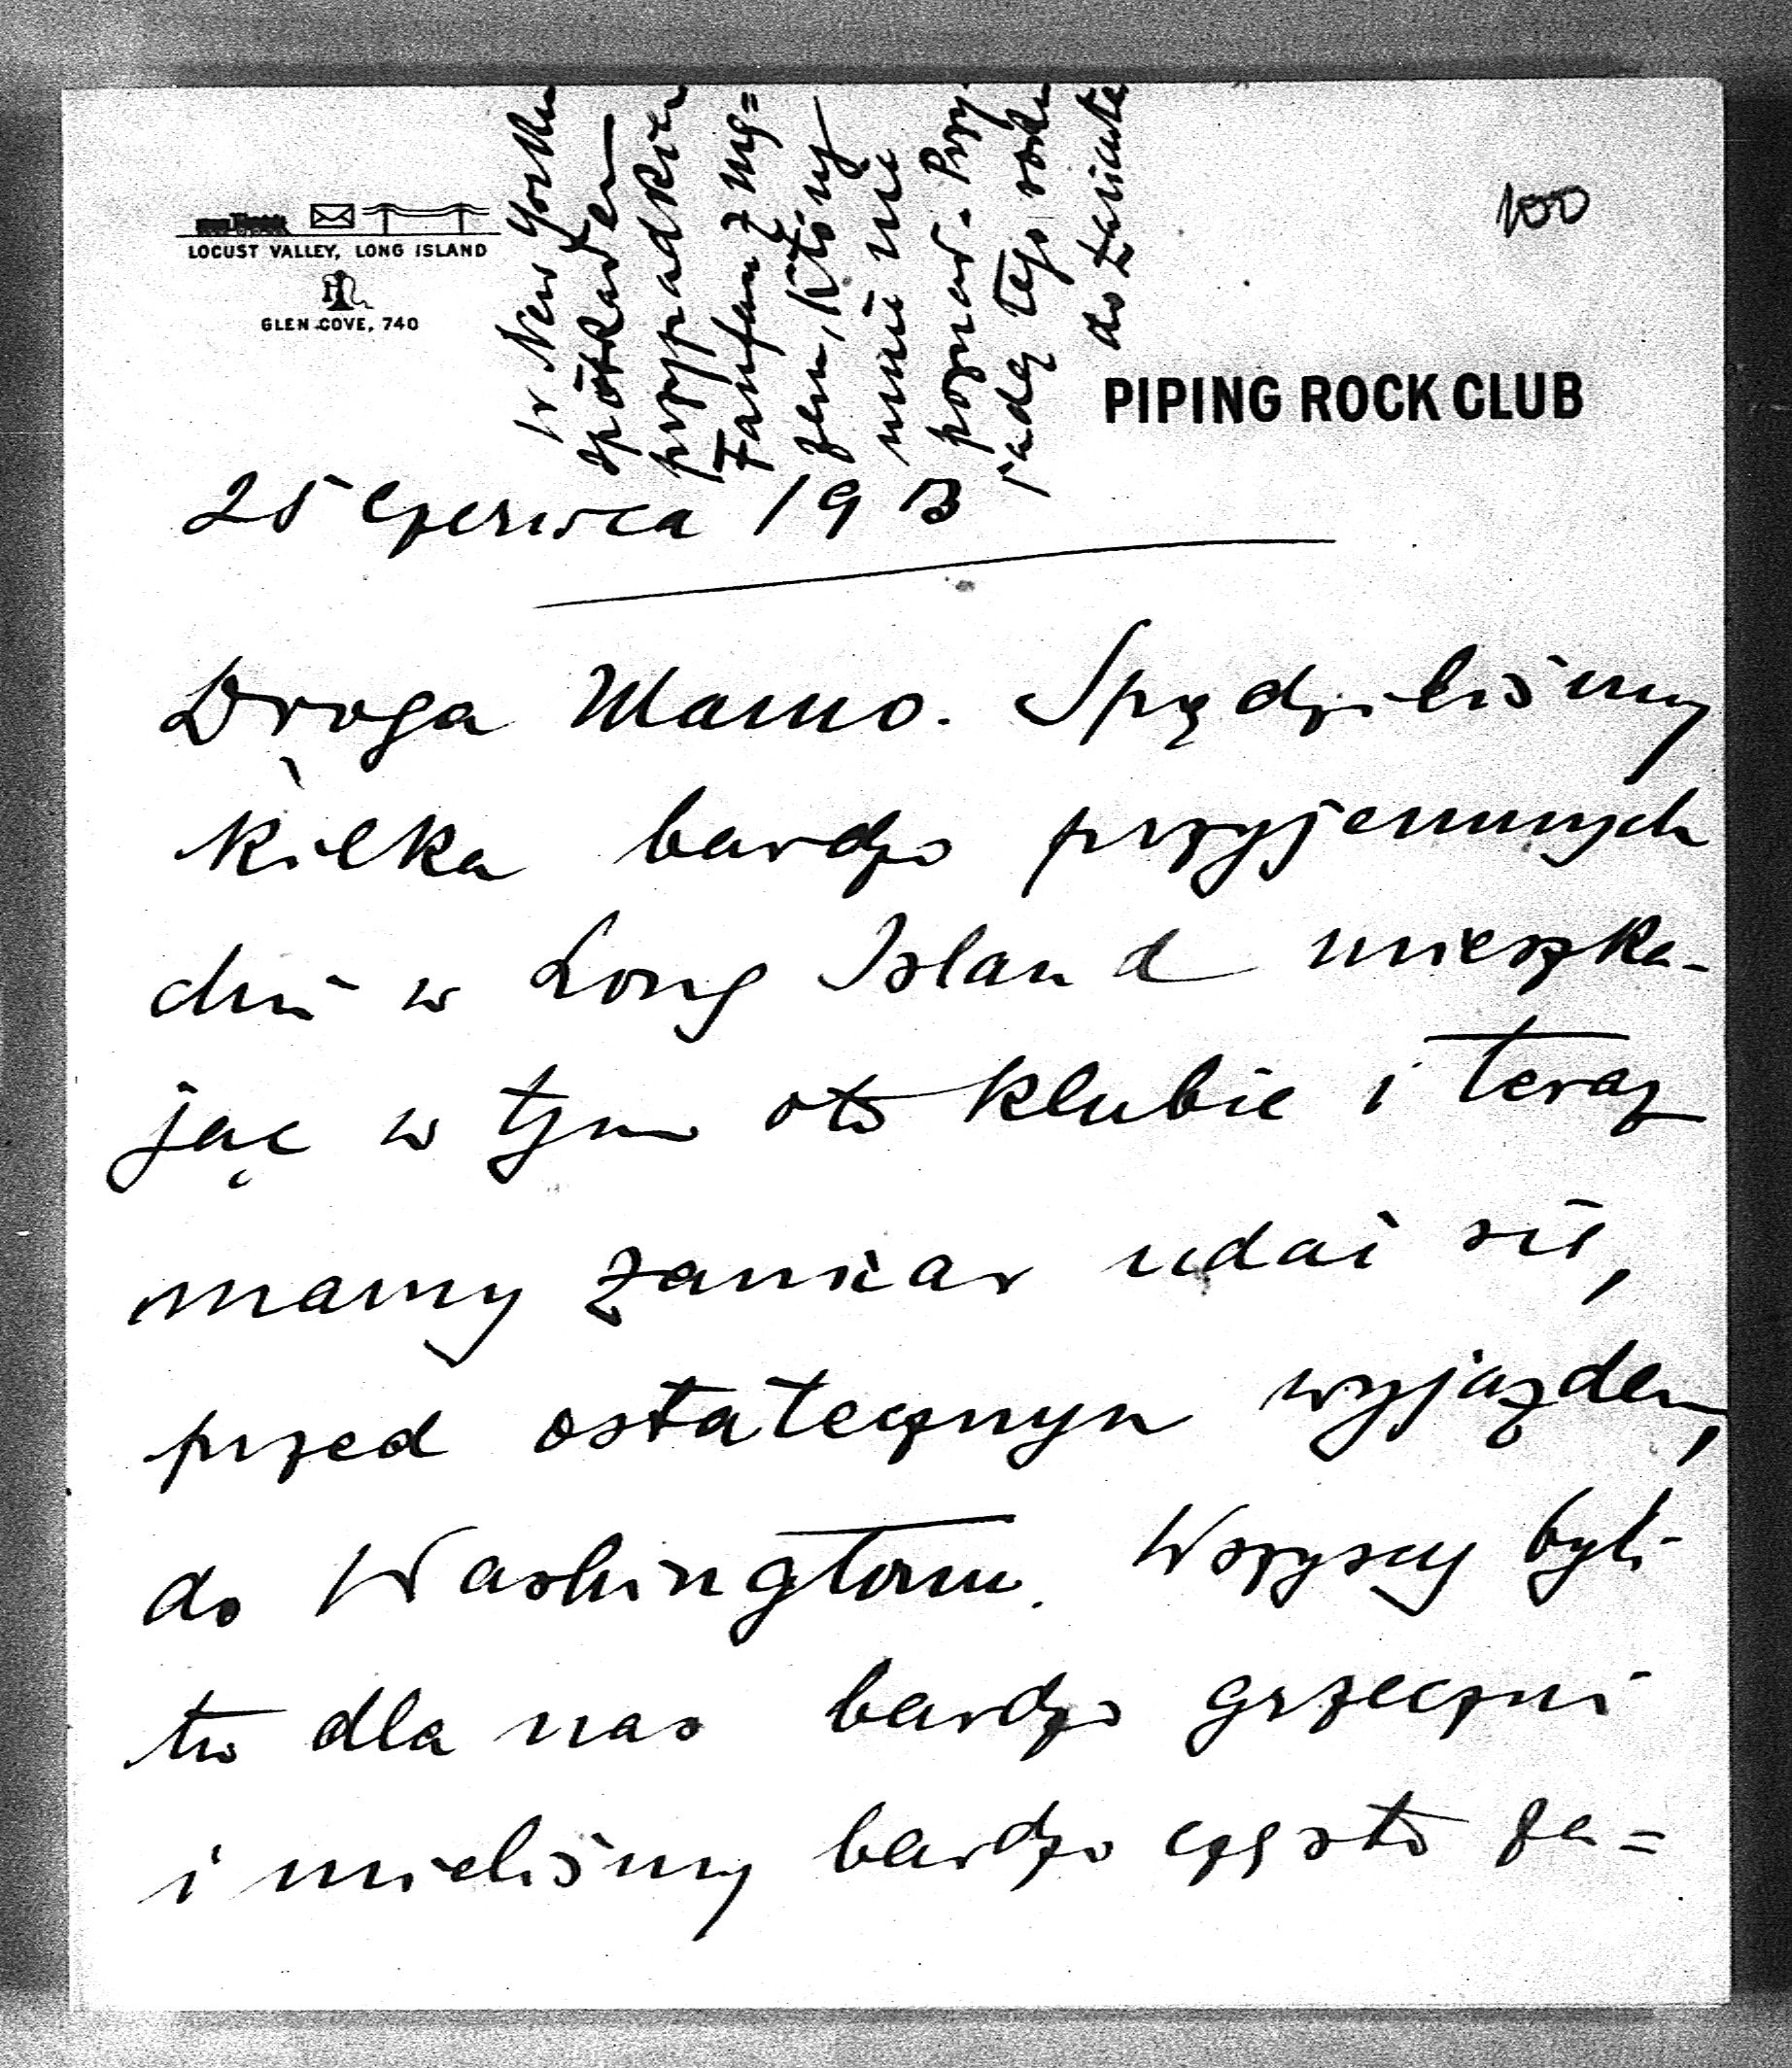 100
LOCUST VALLEY, LONG ISLAND
GLEN COVE, 740
PIPING ROCK CLUB
w New Yorku
spotkałem
przypadkiem
Fanfani z mę=
żem, który
mnie nie
poznał. Przy-
jadę tego roku
do Łańcuta
25 czerwca 1913
Droga Mamo. Spędziliśmy
kilka bardzo przyjemnych
dni w Long Island mieszka-
jąc w tym oto klubie i teraz
mamy zamiar udać się,
przed ostatecznym wyjazdem,
do Washingtonu. Wszyscy byli
tu dla nas bardzo grzeczni
i mieliśmy bardzo często za=